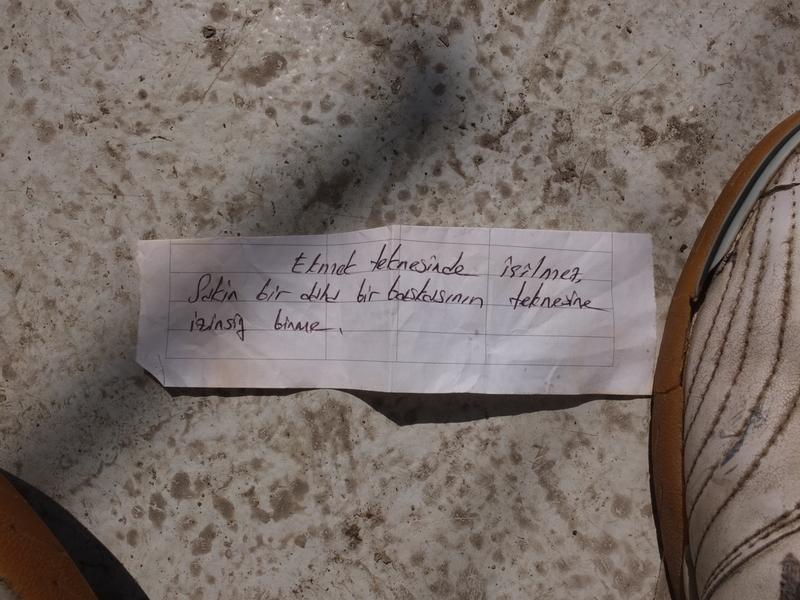 Ekmek teknesinde içilmez,
Sakın bir daha bir başkasının teknesine
izinsiz binme.